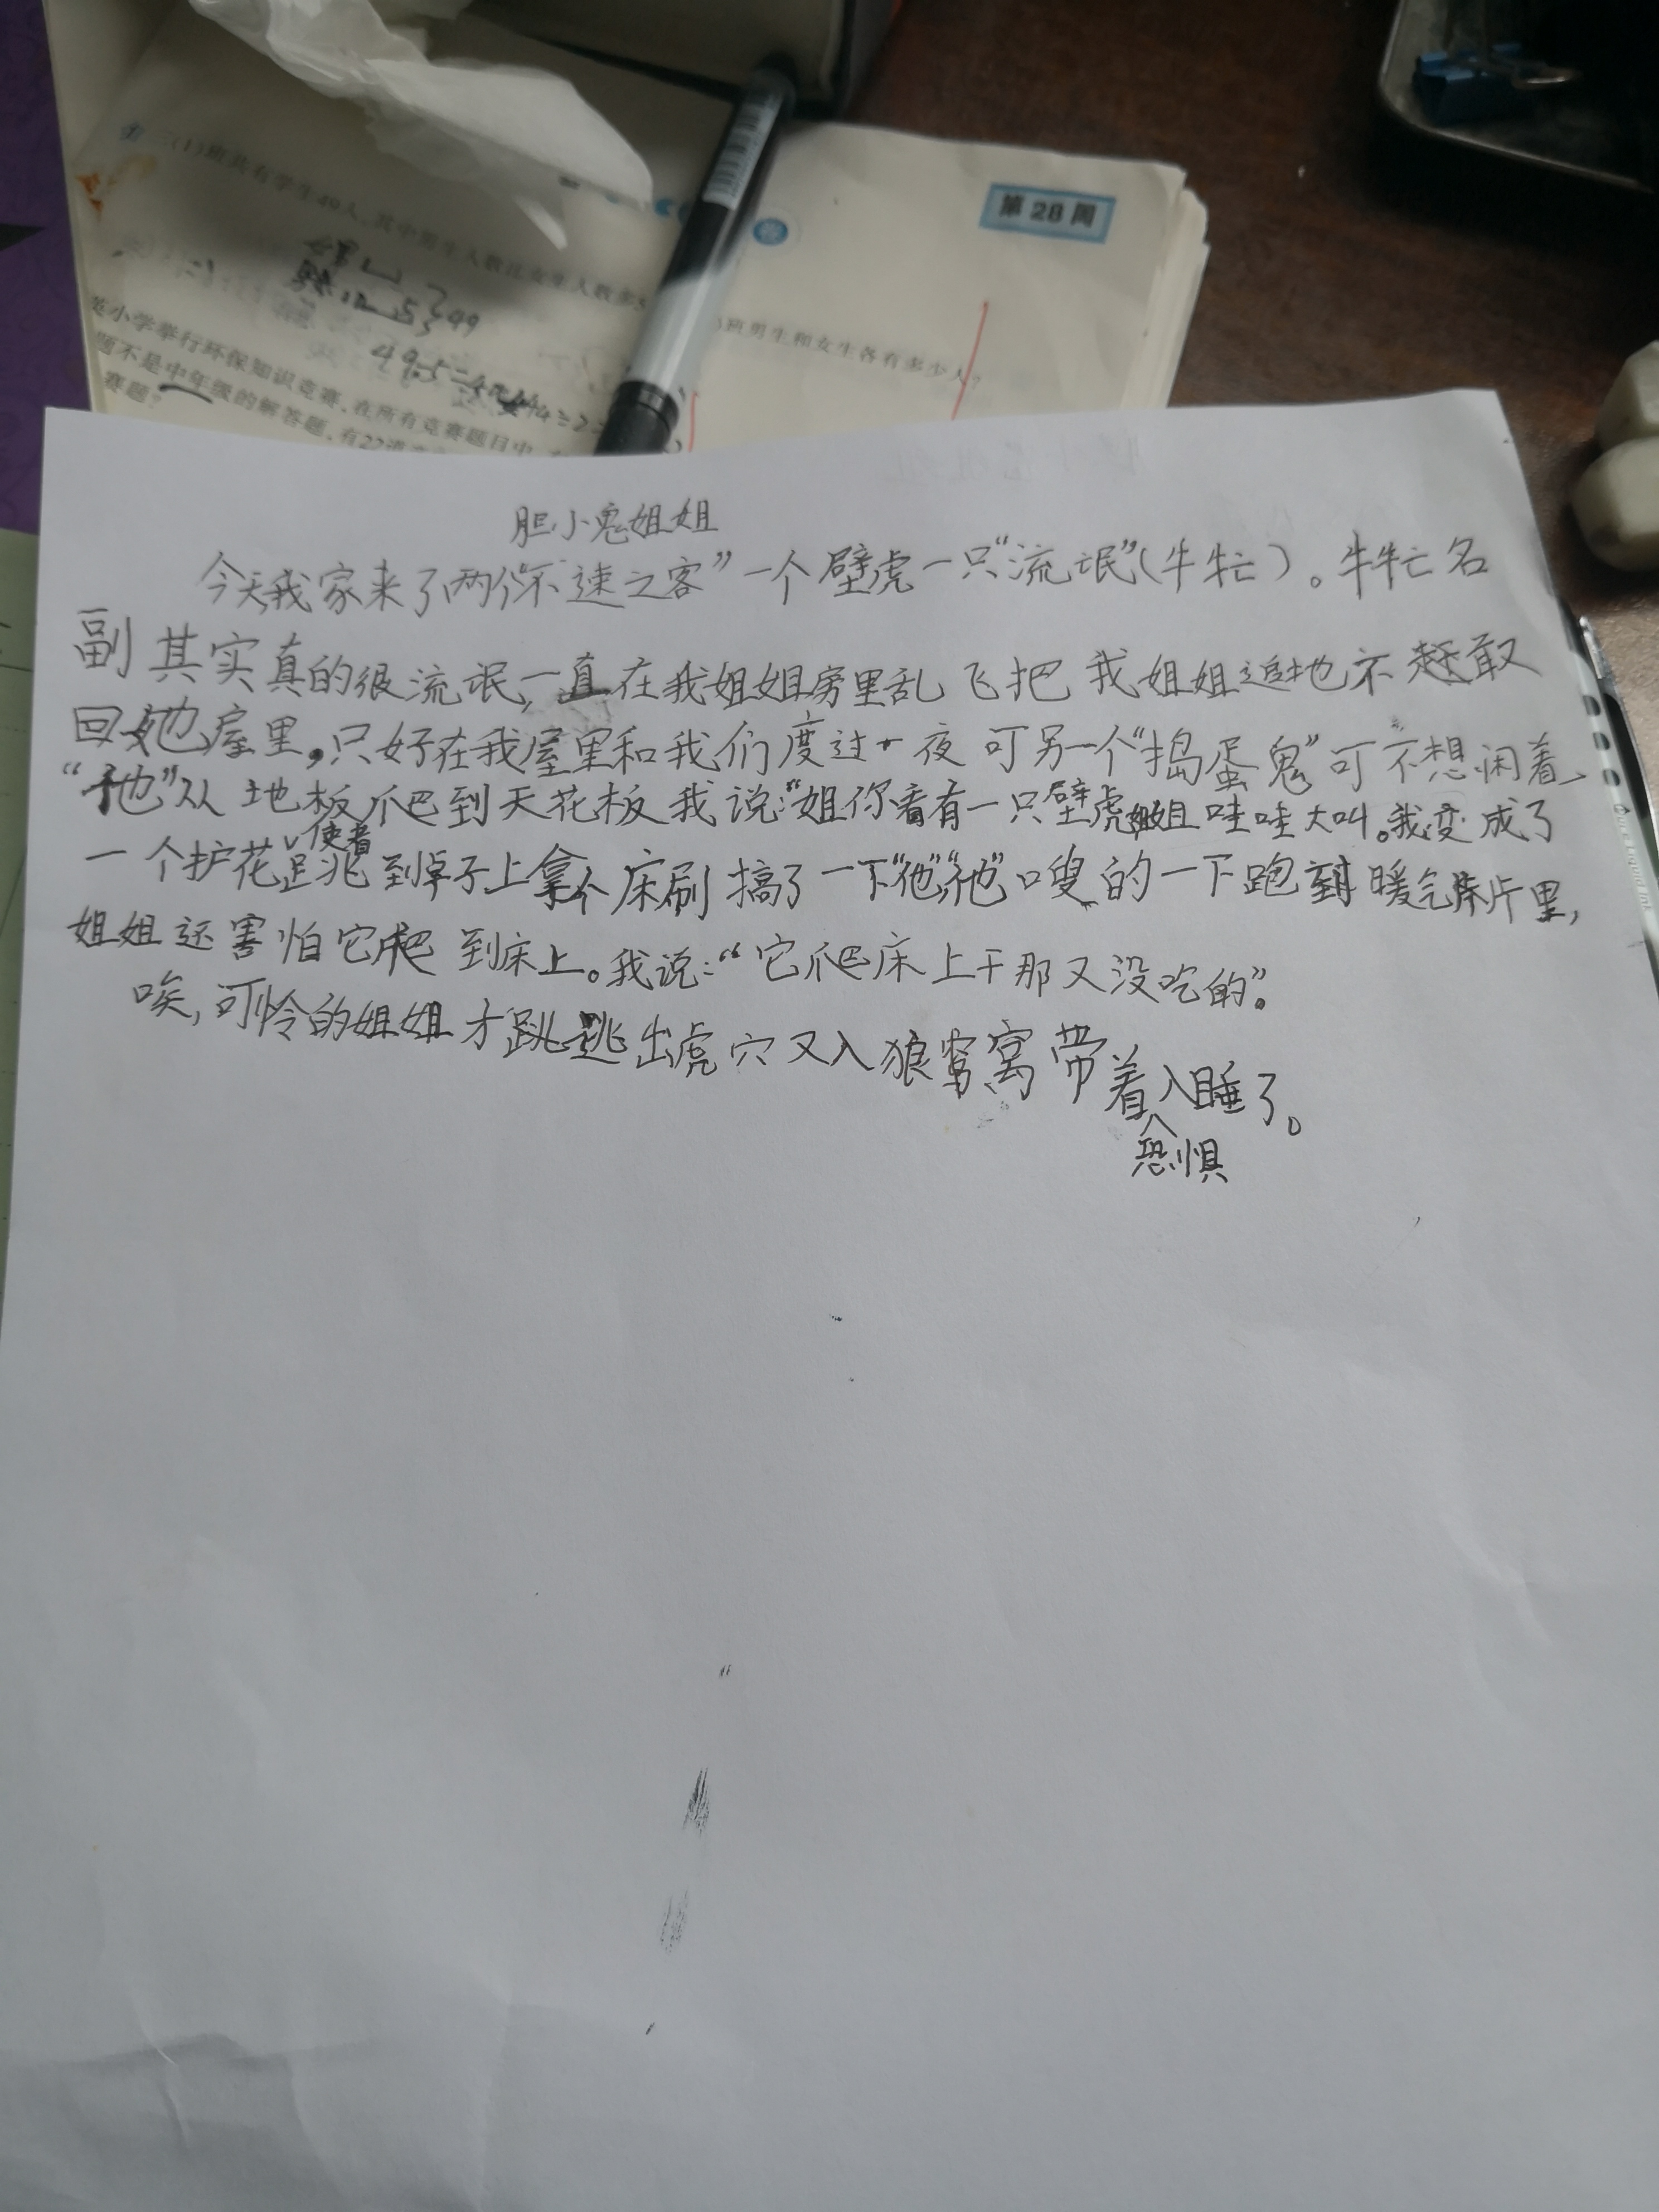 二(1)班共有学生49人,其中男生人数比女生人数多5
第28周
班男生和女生各有多少人?
英小学举行环保知识竞赛,在所有竞赛题目中,
题不是中年级的解答题,有22道
赛题?
胆小鬼姐姐
今天我家来了两个“不速之客”一个壁虎一只“流氓”(牛牤)。牛牤名
副其实真的很流氓,一直在我姐姐房里乱飞把我姐姐追地不敢
回她屋里,只好在我屋里和我们度过一夜可另一个“捣蛋鬼”可不想闲着
“他”从地板爬到天花板我说:“姐你看有一只壁虎姐姐哇哇大叫。我变成了
一个护花使者跳到桌子上拿个床刷搞了一下“他”,“他”嗖的一下跑到暖气片里,
姐姐还害怕它爬到床上。我说:“它爬床上干那又没吃的”。
唉,可怜的姐姐才逃出虎穴又入狼窝带着恐惧入睡了。